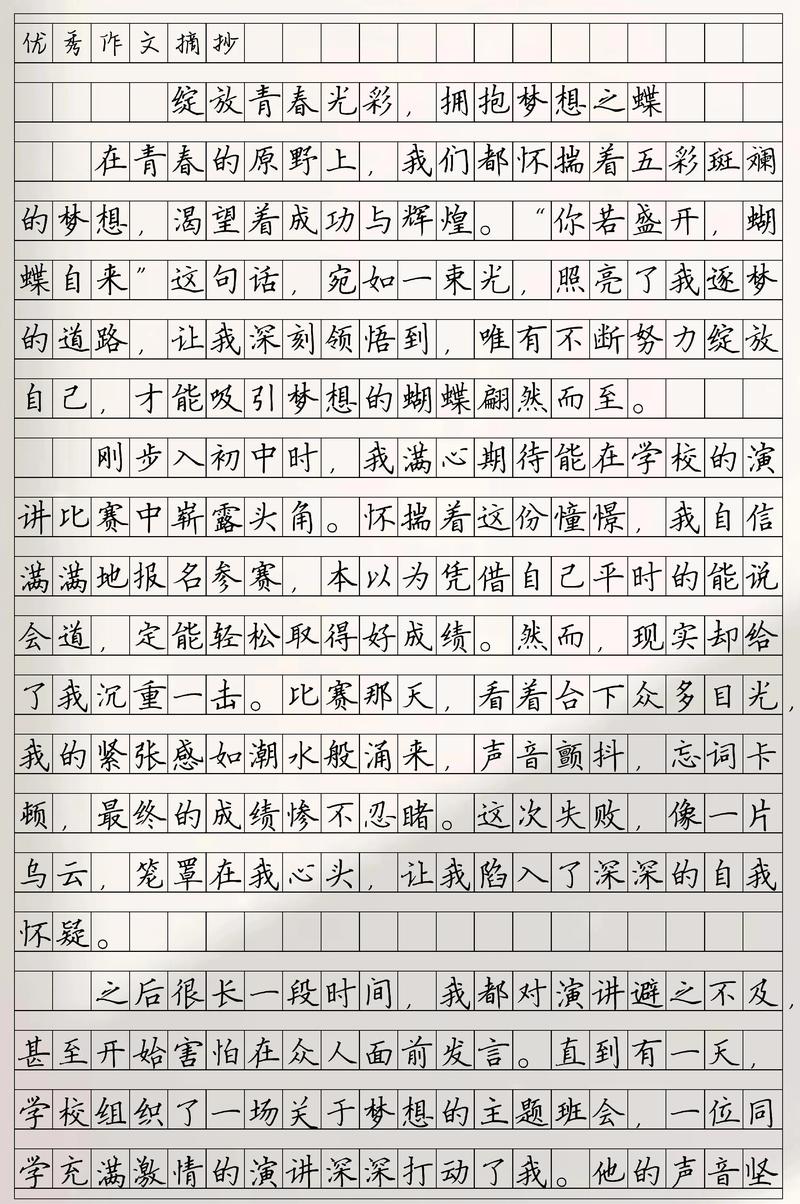 优秀作文摘抄
绽放青春光彩，拥抱梦想之蝶
在青春的原野上，我们都怀揣着五彩斑斓
的梦想，渴望着成功与辉煌。“你若盛开，蝴
蝶自来”这句话，宛如一束光，照亮了我逐梦
的道路，让我深刻领悟到，唯有不断努力绽放
自己，才能吸引梦想的蝴蝶翩然而至。
刚步入初中时，我满心期待能在学校的演
讲比赛中崭露头角。怀揣着这份憧憬，我自信
满满地报名参赛，本以为凭借自己平时的能说
会道，定能轻松取得好成绩。然而，现实却给
了我沉重一击。比赛那天，看着台下众多目光，
我的紧张感如潮水般涌来，声音颤抖，忘词卡
顿，最终的成绩惨不忍睹。这次失败，像一片
乌云，笼罩在我心头，让我陷入了深深的自我
怀疑。
之后很长一段时间，我都对演讲避之不及，
甚至开始害怕在众人面前发言。直到有一天，
学校组织了一场关于梦想的主题班会，一位同
学充满激情的演讲深深打动了我。他的声音坚